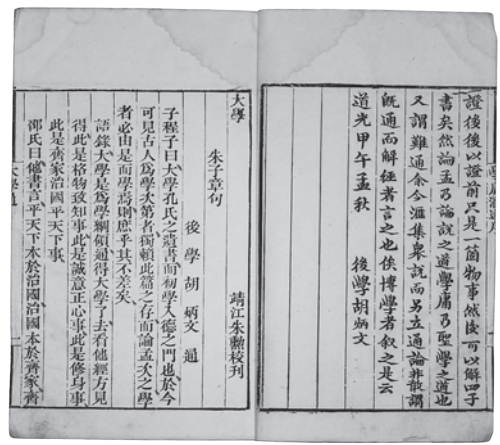 證後後以證前只是一箇物事然後可以解四子
書矣然論孟乃論說之道學庸乃聖學之道也
又謂難通余今滙集衆說而另立通論非敢謂
旣通而解經者言之也俟博學者叙之是云
道光甲午孟秋　後學胡炳文
大學　靖江朱勳校刊
朱子章句
後學胡炳文通
子程子曰大學孔氏之遺書而初學入德之門也於今
可見古人爲學次第者獨賴此篇之存而論孟次之學
者必由是而學焉則庶乎其不差矣
語錄大學是爲學綱領通得大學了去看他經方見
得此是格物致知事此是誠意正心事此是修身事
此是齊家治國平天下事
鄧氏曰他書言平天下本於治國治國本於齊家齊
大學通